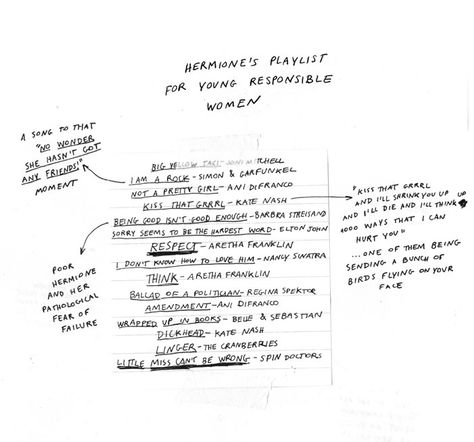 HERMIONE'S PLAYLIST
FOR YOUNG RESPONSIBLE
WOMEN
A SONG TO THAT
"NO WONDER
SHE HASN'T GOT
ANY FRIENDS!"
MOMENT
BIG YELLOW TAXI - JONI MITCHELL
I AM A ROCK - SIMON & GARFUNKEL
NOT A PRETTY GIRL - ANI DIFRANCO
KISS THAT GRRRL - KATE NASH
BEING GOOD ISN'T GOOD ENOUGH - BARBRA STREISAND
SORRY SEEMS TO BE THE HARDEST WORD - ELTON JOHN
RESPECT - ARETHA FRANKLIN
I DON'T KNOW HOW TO LOVE HIM - NANCY SINATRA
THINK - ARETHA FRANKLIN
BALLAD OF A POLITICIAN - REGINA SPEKTOR
AMENDMENT - ANI DIFRANCO
WRAPPED UP IN BOOKS - BELLE & SEBASTIAN
DICKHEAD - KATE NASH
LINGER - THE CRANBERRIES
LITTLE MISS CAN'T BE WRONG - SPIN DOCTORS
"KISS THAT GRRRL
AND I'LL SHRINK YOU UP
AND I'LL DIE AND I'LL THINK UP
1000 WAYS THAT I CAN
HURT YOU"
...ONE OF THEM BEING
SENDING A BUNCH OF
BIRDS FLYING ON YOUR
FACE
POOR
HERMIONE
AND HER
PATHOLOGICAL
FEAR OF
FAILURE